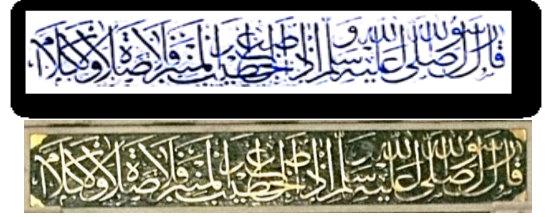 قال رسول الله صلى الله عليه وسلم إذا صعد الخطيب المنبر فلا صلاة ولا كلام
قال رسول الله صلى الله عليه وسلم إذا صعد الخطيب المنبر فلا صلاة ولا كلام